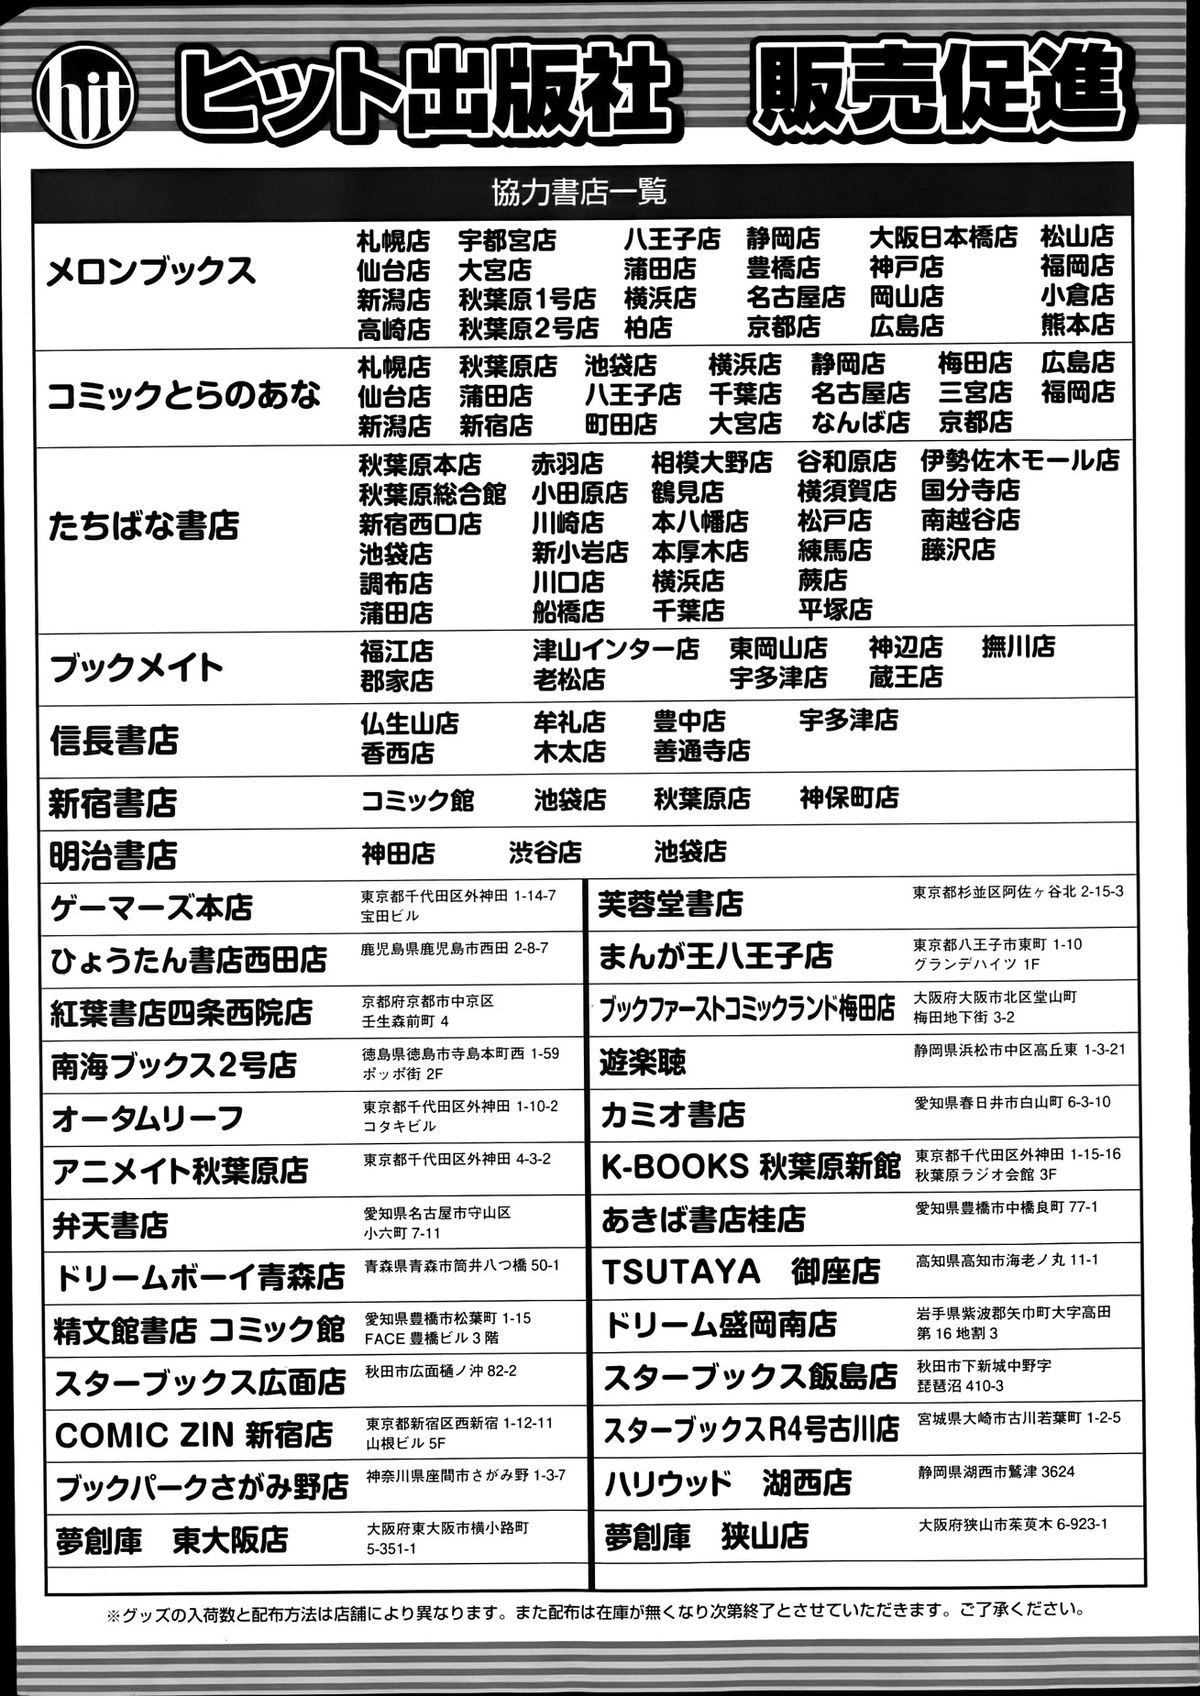 hit ヒット出版社　販売促進
協力書店一覧
メロンブックス
札幌店 宇都宮店 八王子店 静岡店 大阪日本橋店 松山店
仙台店 大宮店 蒲田店 豊橋店 神戸店 福岡店
新潟店 秋葉原1号店 横浜店 名古屋店 岡山店 小倉店
高崎店 秋葉原2号店 柏店 京都店 広島店 熊本店
コミックとらのあな
札幌店 秋葉原店 池袋店 横浜店 静岡店 梅田店 広島店
仙台店 蒲田店 八王子店 千葉店 名古屋店 三宮店 福岡店
新潟店 新宿店 町田店 大宮店 なんば店 京都店
たちばな書店
秋葉原本店 赤羽店 相模大野店 谷和原店 伊勢佐木モール店
秋葉原総合館 小田原店 鶴見店 横須賀店 国分寺店
新宿西口店 川崎店 本八幡店 松戸店 南越谷店
池袋店 新小岩店 本厚木店 練馬店 藤沢店
調布店 川口店 横浜店 蕨店
蒲田店 船橋店 千葉店 平塚店
ブックメイト
福江店 津山インター店 東岡山店 神辺店 撫川店
郡家店 老松店 宇多津店 蔵王店
信長書店
仏生山店 牟礼店 豊中店 宇多津店
香西店 木太店 善通寺店
新宿書店
コミック館 池袋店 秋葉原店 神保町店
明治書店
神田店 渋谷店 池袋店
ゲーマーズ本店
東京都千代田区外神田 1-14-7
宝田ビル
芙蓉堂書店
東京都杉並区阿佐ヶ谷北 2-15-3
ひょうたん書店西田店
鹿児島県鹿児島市西田 2-8-7
まんが王八王子店
東京都八王子市東町 1-10
グランデハイツ 1F
紅葉書店四条西院店
京都府京都市中京区
壬生森前町 4
ブックファーストコミックランド梅田店
大阪府大阪市北区堂山町
梅田地下街 3-2
南海ブックス2号店
徳島県徳島市寺島本町西 1-59
ポッポ街 2F
遊楽聴
静岡県浜松市中区高丘東 1-3-21
オータムリーフ
東京都千代田区外神田 1-10-2
コタキビル
カミオ書店
愛知県春日井市白山町 6-3-10
アニメイト秋葉原店
東京都千代田区外神田 4-3-2
K-BOOKS 秋葉原新館
東京都千代田区外神田 1-15-16
秋葉原ラジオ会館 3F
弁天書店
愛知県名古屋市守山区
小六町 7-11
あきば書店桂店
愛知県豊橋市中橋良町 77-1
ドリームボーイ青森店
青森県青森市筒井八つ橋 50-1
TSUTAYA　御座店
高知県高知市海老ノ丸 11-1
精文館書店 コミック館
愛知県豊橋市松葉町 1-15
FACE 豊橋ビル 3 階
ドリーム盛岡南店
岩手県紫波郡矢巾町大字高田
第 16 地割 3
スターブックス広面店
秋田市広面樋ノ沖 82-2
スターブックス飯島店
秋田市下新城中野字
琵琶沼 410-3
COMIC ZIN 新宿店
東京都新宿区西新宿 1-12-11
山根ビル 5F
スターブックスR4号古川店
宮城県大崎市古川若葉町 1-2-5
ブックパークさがみ野店
神奈川県座間市さがみ野 1-3-7
ハリウッド　湖西店
静岡県湖西市鷲津 3624
夢創庫　東大阪店
大阪府東大阪市横小路町
5-351-1
夢創庫　狭山店
大阪府狭山市茱萸木 6-923-1
※グッズの入荷数と配布方法は店舗により異なります。また配布は在庫が無くなり次第終了とさせていただきます。ご了承ください。